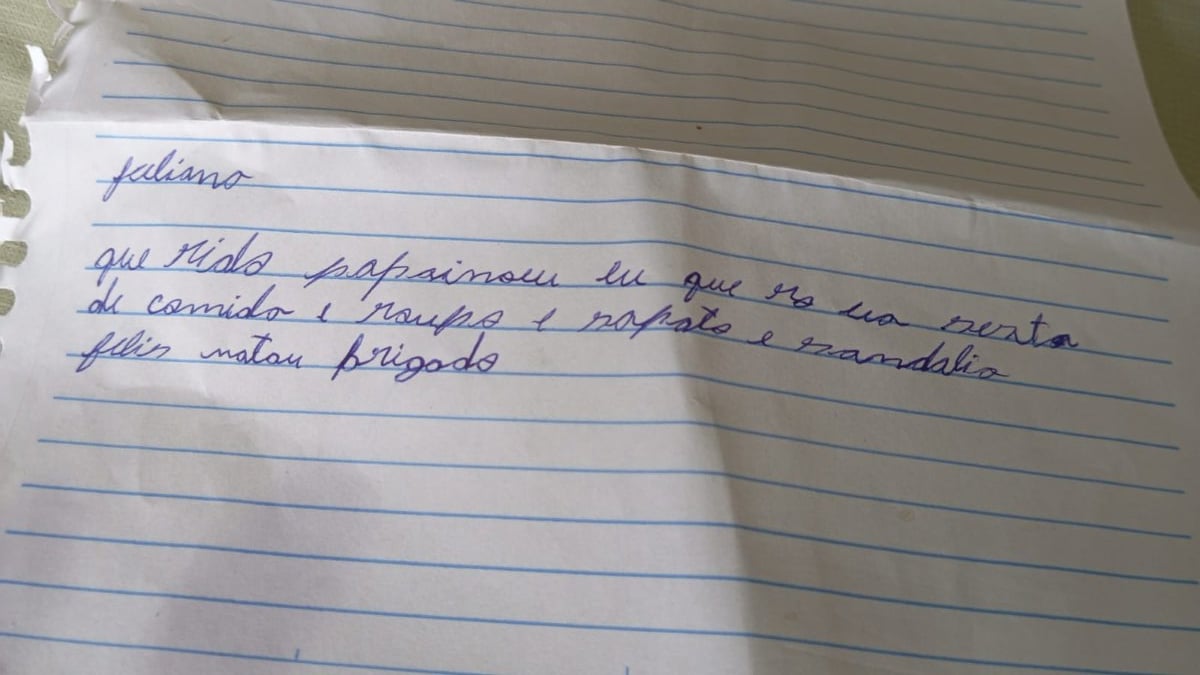 juliano
que rido papainoeu eu que ro ua sesta
de comida e roupa e sapato e sandalia
felis natau brigado